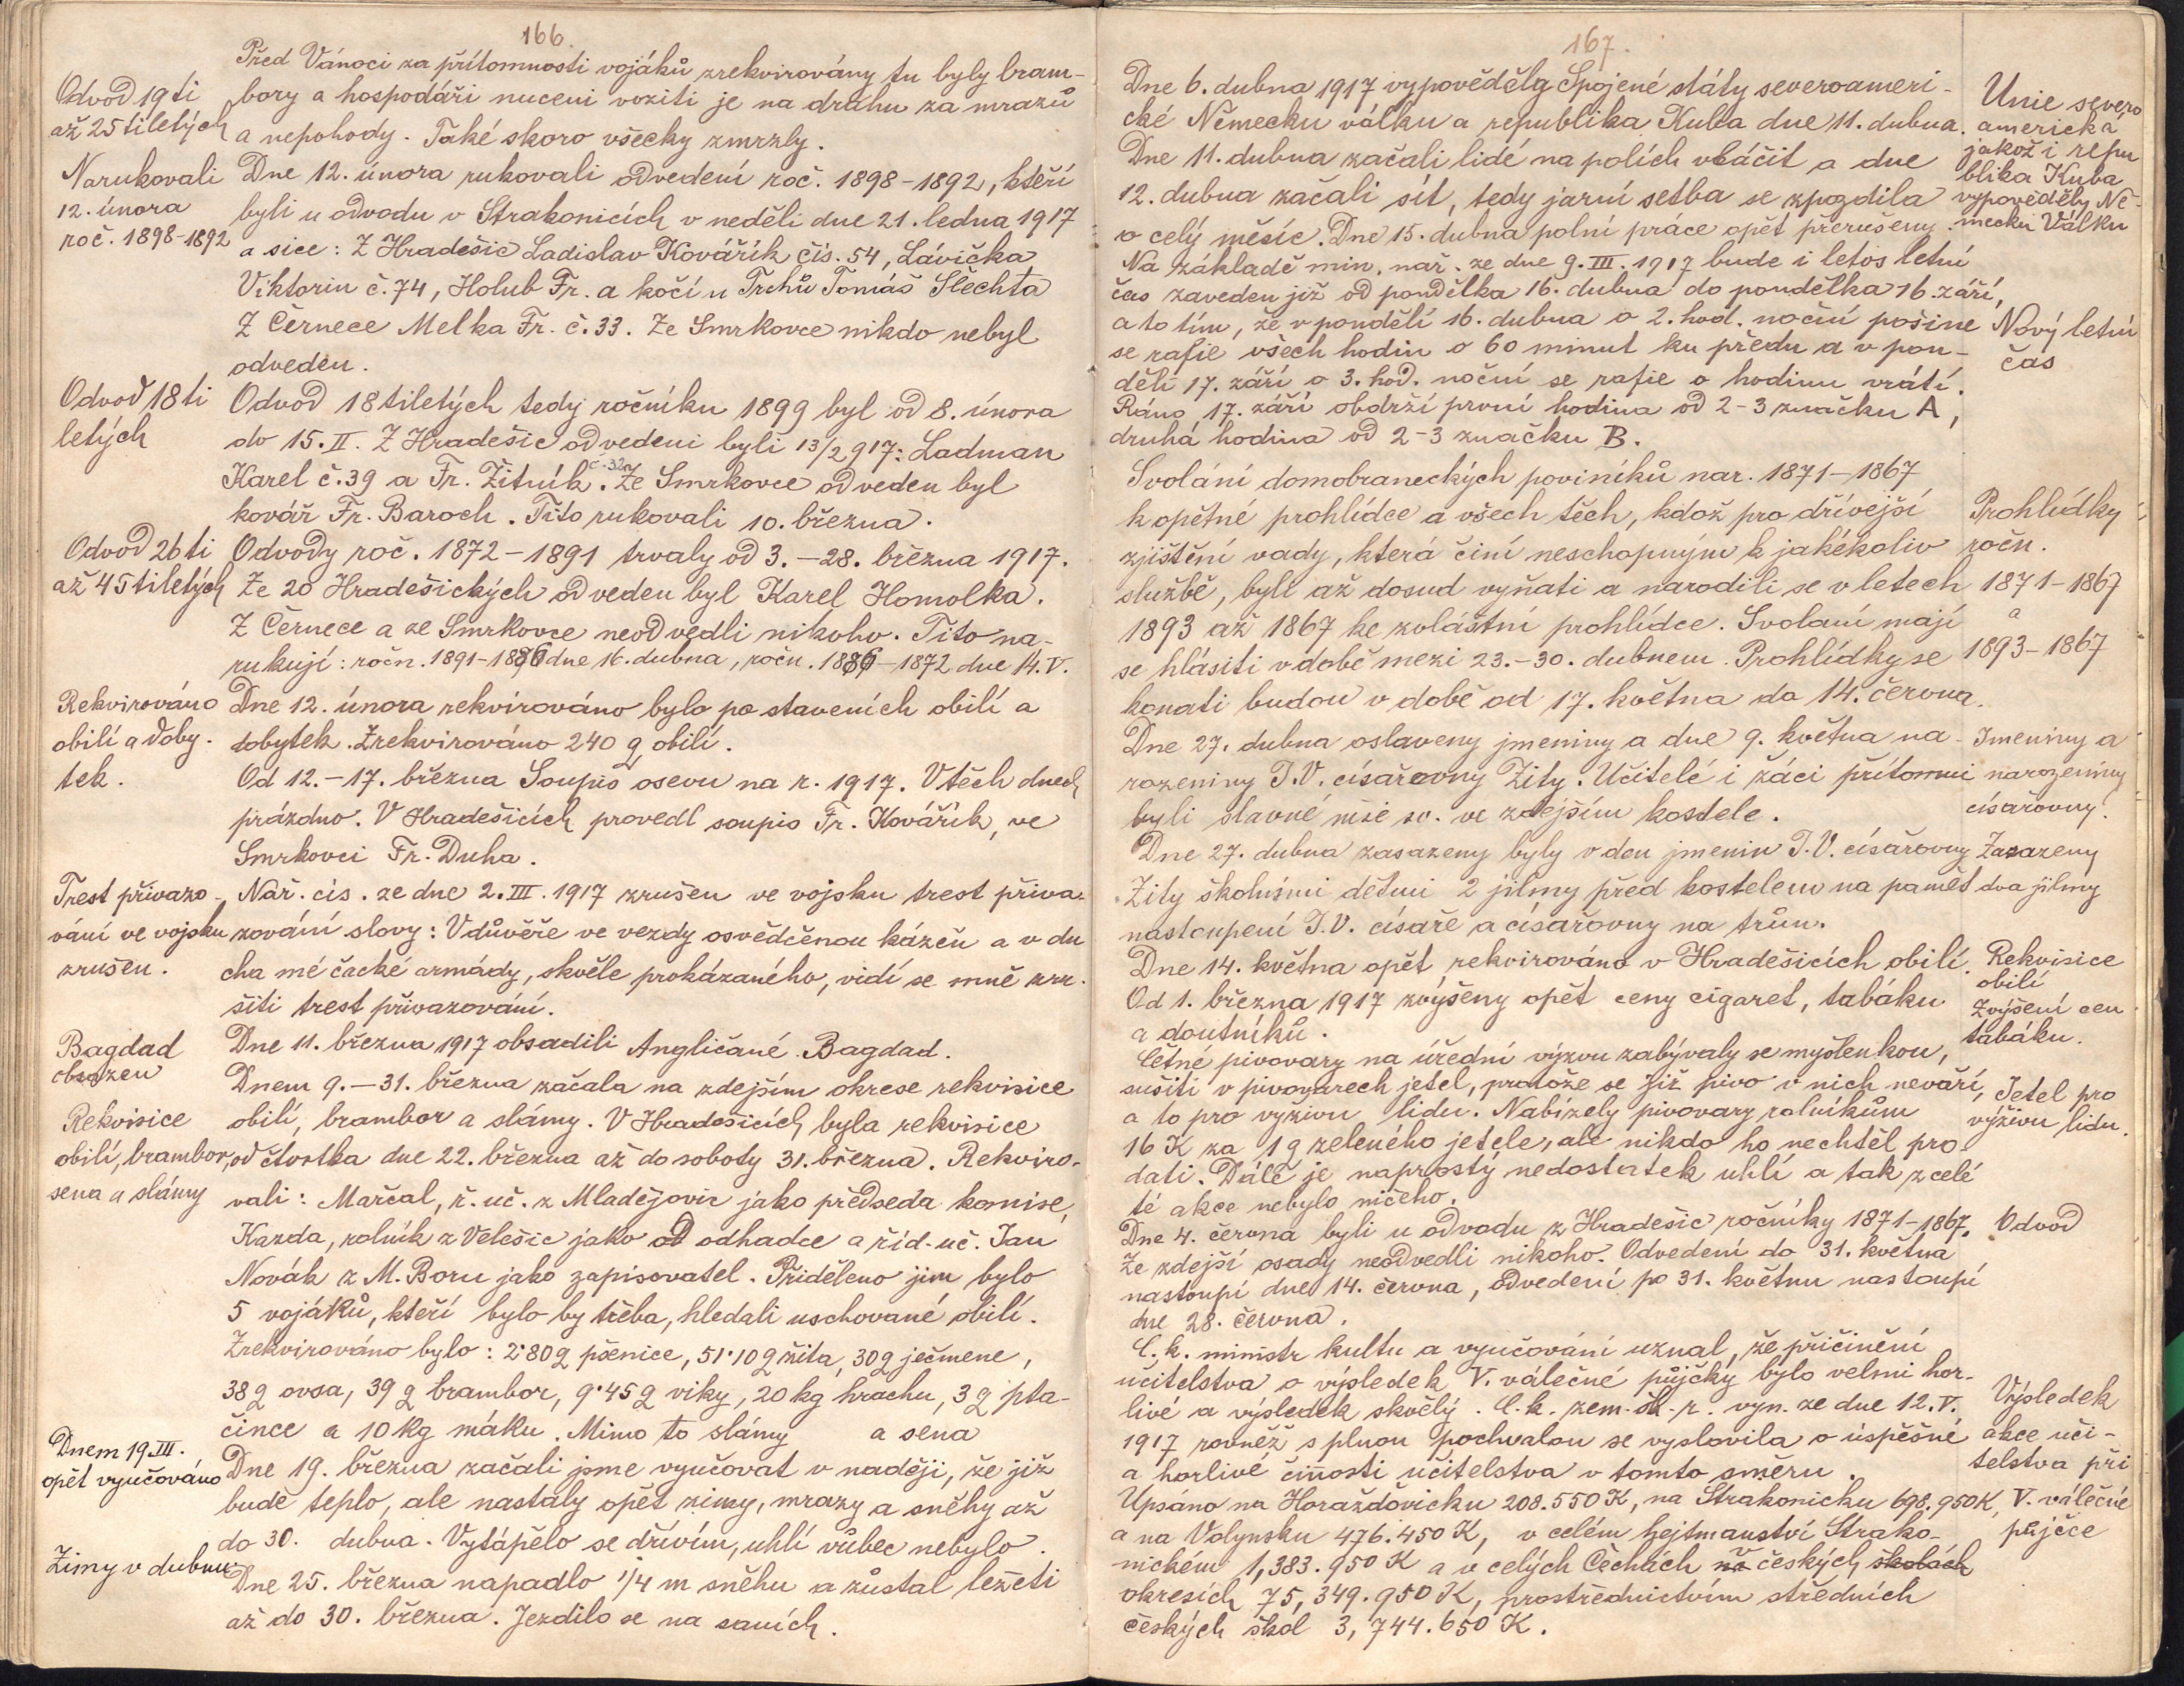 166.
Před Vánoci za přítomnosti vojáků zrekvirovány tu byly bram-
Odvod 19ti
až 25tiletých
bory a hospodáři nuceni voziti je na dráhu za mrazů
a nepohody. Také skoro všecky zmrzly.
Narukovali
12. února
roč. 1898-1892
Dne 12. února rukovali odvedení roč. 1898-1892, kteří
byli u odvodu v Strakonicích v neděli dne 21. ledna 1917
a sice: Z Hradešic Ladislav Kovářík čís. 54, Lávička
Viktorin č. 74, Holub Fr. a kočí u Trchů Tomáš Šlechta
Z Černece Melka Fr. č. 33. Ze Smrkovce nikdo nebyl
odveden.
Odvod 18ti
letých
Odvod 18tiletých tedy ročníku 1899 byl od 8. února
do 15. II. Z Hradešic odvedeni byli 13/2 917: Ladman
Karel č. 39 a Fr. Žitník č. 32. Ze Smrkovce odveden byl
kovář Fr. Baroch. Tito rukovali 10. března.
Odvod 26ti
až 45tiletých
Odvody roč. 1872-1891 trvaly od 3.-28. března 1917.
Ze 20 Hradešických odveden byl Karel Homolka.
Z Černece a ze Smrkovce neodvedli nikoho. Tito na-
rukují: ročn. 1891-1886 dne 16. dubna, ročn. 1886-1872 dne 14. V.
Rekvirováno
obilí a doby-
tek.
Dne 12. února rekvirováno bylo po staveních obilí a
dobytek. Zrekvirováno 240 q obilí.
Od 12.-17. března Soupis osevu na r. 1917. V těch dnech
prázdno. V Hradešicích provedl soupis Fr. Kovářík, ve
Smrkovci Fr. Duha.
Trest přivazo-
vání ve vojsku
zrušen.
Nař. cís. ze dne 2. III. 1917 zrušen ve vojsku trest přiva-
zování slovy: V důvěře ve vezdy osvědčenou kázeň a v du
cha mé čacké armády, skvěle prokázaného, vidí se mně zru-
šiti trest přivazování.
Bagdad
obsazen
Dne 11. března 1917 obsadili Angličané Bagdad.
Rekvisice
obilí, brambor,
sena a slámy
Dnem 9.-31. března začala na zdejším okrese rekvisice
obilí, brambor a slámy. V Hradešicích byla rekvisice
od čtvrtka dne 22. března až do soboty 31. března. Rekviro-
vali: Marčal, ř. uč. z Mladějovic jako předseda komise,
Kazda, rolník z Velešic jako od odhadce a říd. uč. Jan
Novák z M. Boru jako zapisovatel. Přiděleno jim bylo
5 vojáků, kteří bylo by třeba, hledali uschované obilí.
Zrekvirováno bylo: 2·80 q pšenice, 51·10 q žita, 30 q ječmene,
38 q ovsa, 39 q brambor, 9·45 q viky, 20 kg hrachu, 3 q pta-
čince a 10 kg máku. Mimo to slámy a sena
Dnem 19. III.
opět vyučováno
Dne 19. března začali jsme vyučovat v naději, že již
bude teplo, ale nastaly opět zimy, mrazy a sněhy až
do 30. dubna. Vytápělo se dřívím, uhlí vůbec nebylo.
Zimy v dubnu
Dne 25. března napadlo 1/4 m sněhu a zůstal ležeti
až do 30. března. Jezdilo se na saních.
167.
Dne 6. dubna 1917 vypověděly Spojené státy severoameri-
cké Německu válku a republika Kuba dne 11. dubna.
Unie severo
americká
jakož i repu
blika Kuba
vypověděly Ně-
mecku Válku
Dne 11. dubna začali lidé na polích vláčit a dne
12. dubna začali sít, tedy jarní setba se zpozdila
o celý měsíc. Dne 15. dubna polní práce opět přerušeny.
Na základě min. nař. ze dne 9. III. 1917 bude i letos letní
čas zaveden již od pondělka 16. dubna do pondělka 16. září,
a to tím, že v pondělí 16. dubna o 2. hod. noční pošine
se rafie všech hodin o 60 minut ku předu a v pon-
dělí 17. září o 3. hod. noční se rafie o hodinu vrátí.
Ráno 17. září obdrží první hodina od 2-3 značku A,
druhá hodina od 2-3 značku B.
Nový letní
čas
Svolání domobraneckých poviníků nar. 1871-1867
k opětné prohlídce a všech těch, kdož pro dřívější
zjištění vady, která činí neschopným k jakékoliv
službě, byli až dosud vyňati a narodili se v letech
1893 až 1867 ke zvláštní prohlídce. Svolaní mají
se hlásiti v době mezi 23.-30. dubnem. Prohlídky se
konati budou v době od 17. května do 14. června.
Prohlídky
ročn.
1871-1867
a
1893-1867
Dne 27. dubna oslaveny jmeniny a dne 9. května na-
rozeniny J.V. císařovny Zity. Učitelé i žáci přítomni
byli slavné mše sv. ve zdejším kostele.
Jmeniny a
narozeniny
císařovny.
Dne 27. dubna zasazeny byly v den jmenin J.V. císařovny
Zity školními dětmi 2 jilmy před kostelem na paměť
nastoupení J.V. císaře a císařovny na trůn.
Zasazeny
dva jilmy
Dne 14. května opět rekvirováno v Hradešicích obilí.
Rekvisice
obilí
Od 1. března 1917 zvýšeny opět ceny cigaret, tabáku
a doutníků.
Zvýšení cen
tabáku.
Četné pivovary na úřední výzvu zabývaly se myšlenkou,
sušiti v pivovarech jetel, protože se již pivo v nich nevaří,
a to pro vyživu lidu. Nabízely pivovary rolníkům
16 K za 1 q zeleného jetele, ale nikdo ho nechtěl pro-
dati. Dále je naprostý nedostatek uhlí a tak z celé
té akce nebylo ničeho.
Jetel pro
výživu lidu.
Dne 4. června byli u odvodu z Hradešic ročníky 1871-1867.
Ze zdejší osady neodvedli nikoho. Odvedení do 31. května
nastoupí dne 14. června, odvedení po 31. květnu nastoupí
dne 28. června.
Odvod
C. k. ministr kultu a vyučování uznal, že přičinění
učitelstva o výsledek V. válečné půjčky bylo velmi hor-
livé a výsledek skvělý. C. k. zem. šk. r. vyn. ze dne 12. V.
1917 rovněž s plnou pochvalou se vyslovila o úspěšné
a horlivé činosti učitelstva v tomto směru.
Upsáno na Horažďovicku 208.550 K, na Strakonicku 698.950 K,
a na Volynsku 476.450 K, v celém hejtmanství Strako-
nickém 1,383.950 K a v celých Čechách na v českých školách
okresích 75,349.950 K, prostřednictvím středních
českých škol 3,744.650 K.
Výsledek
akce uči-
telstva při
V. válečné
půjčce